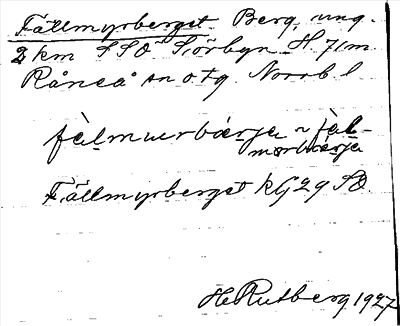 Fällmyrberget. Berg, ung.
2 km SSO Sörbyn. H. 71 m.
Råneå sn o. tg. Norrb. l
fàlmuurbárja ~ fàl-
morbárja
Fällmyrberget kG 29 SO.
H Rutberg 1927